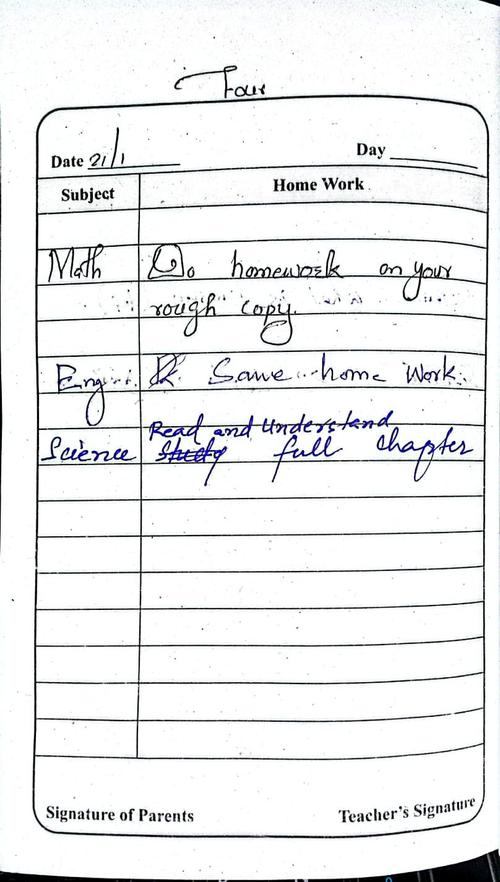 Four
Date 21/1 Day
Subject Home Work
Math Do homework on your
rough copy.
Eng Same home Work.
Read and Understand
Science Study full chapter
Signature of Parents Teacher's Signature